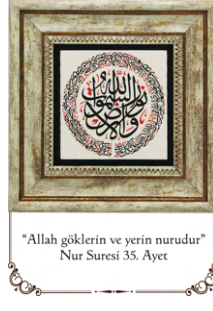 الله نور السموات والارض
“Allah göklerin ve yerin nurudur”
Nur Suresi 35. Ayet